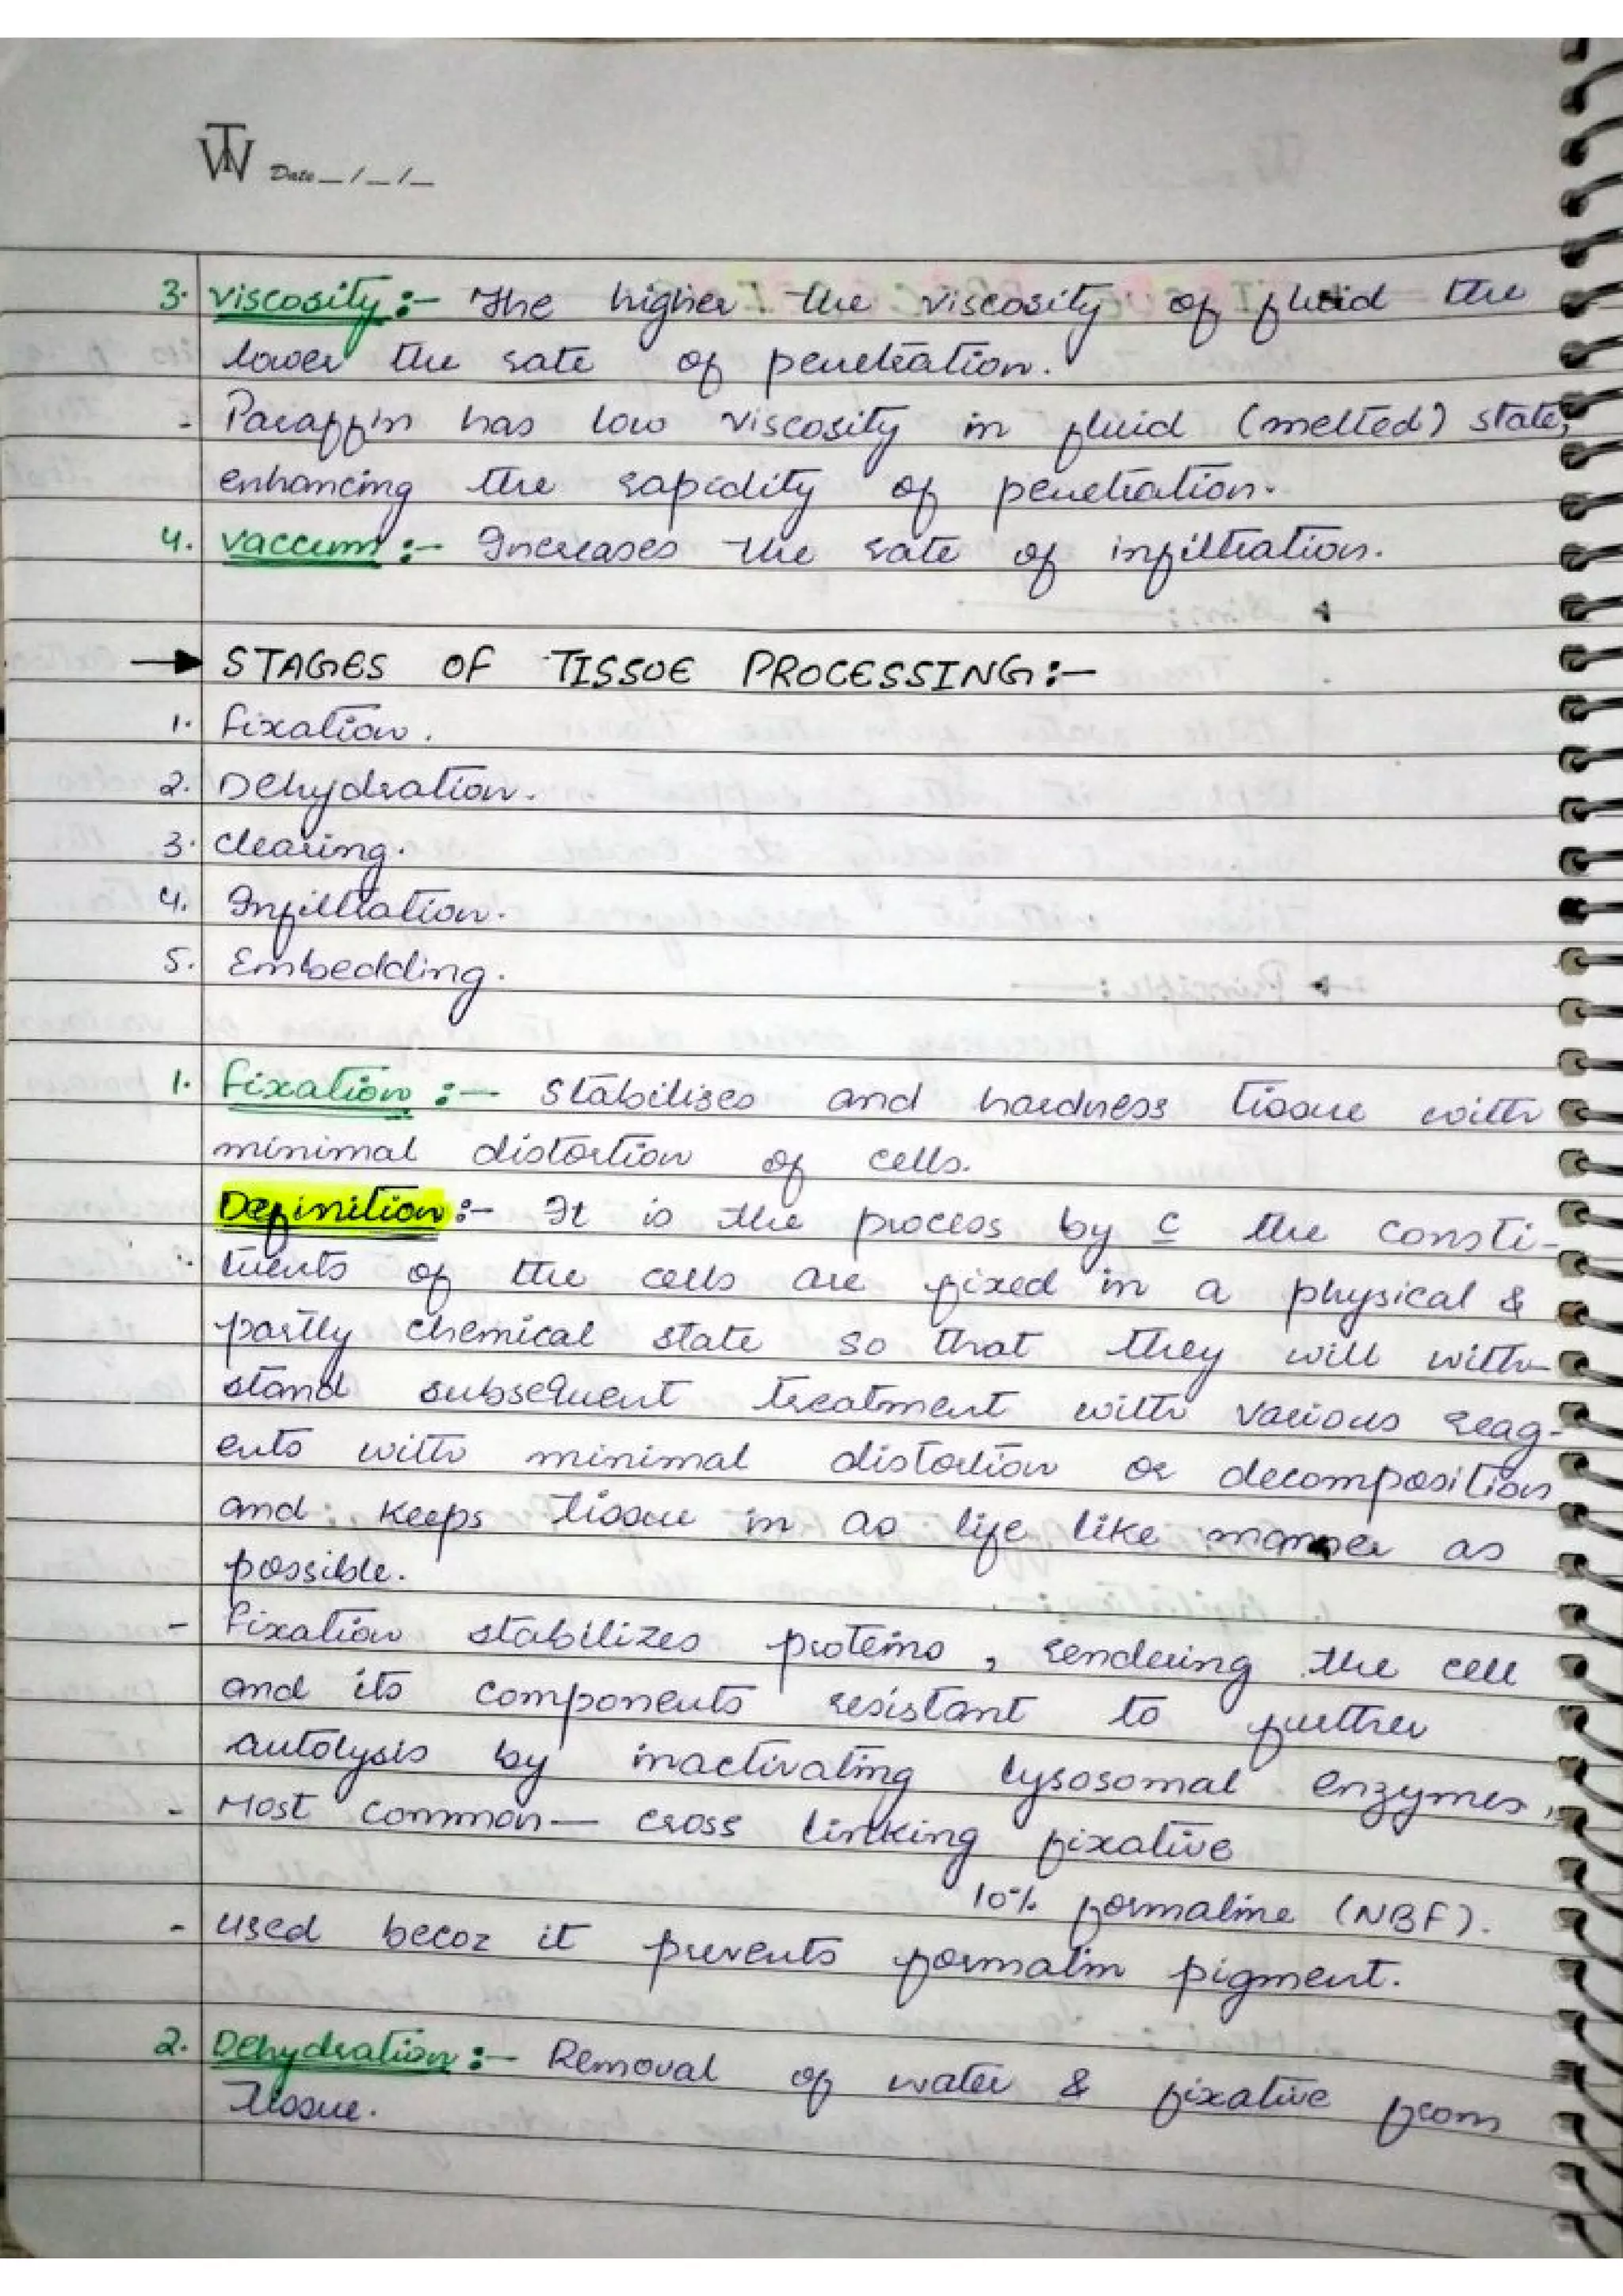 TW Date _ / _ / _
3. Viscosity :- The higher the viscosity of fluid the
lower the rate of penetration.
- Paraffin has low viscosity in fluid (melted) state,
enhancing the rapidity of penetration.
4. Vaccum :- Increases the rate of infiltration.
→ STAGES OF TISSUE PROCESSING :-
1. Fixation.
2. Dehydration.
3. Clearing.
4. Infiltration.
5. Embedding.
1. Fixation :- Stabilises and hardness tissue with
minimal distortion of cells.
Definition :- It is the process by c the consti-
tuents of the cells are fixed in a physical &
partly chemical state so that they will with-
stand subsequent treatment with various reag-
ents with minimal distortion or decomposition
and keeps tissue in as life like manner as
possible.
- Fixation stabilizes proteins, rendering the cell
and its components resistant to further
autolysis by inactivating lysosomal enzymes.
- Most common — cross linking fixative
10% formaline (NBF).
- used becoz it prevents formalin pigment.
2. Dehydration :- Removal of water & fixative from
tissue.